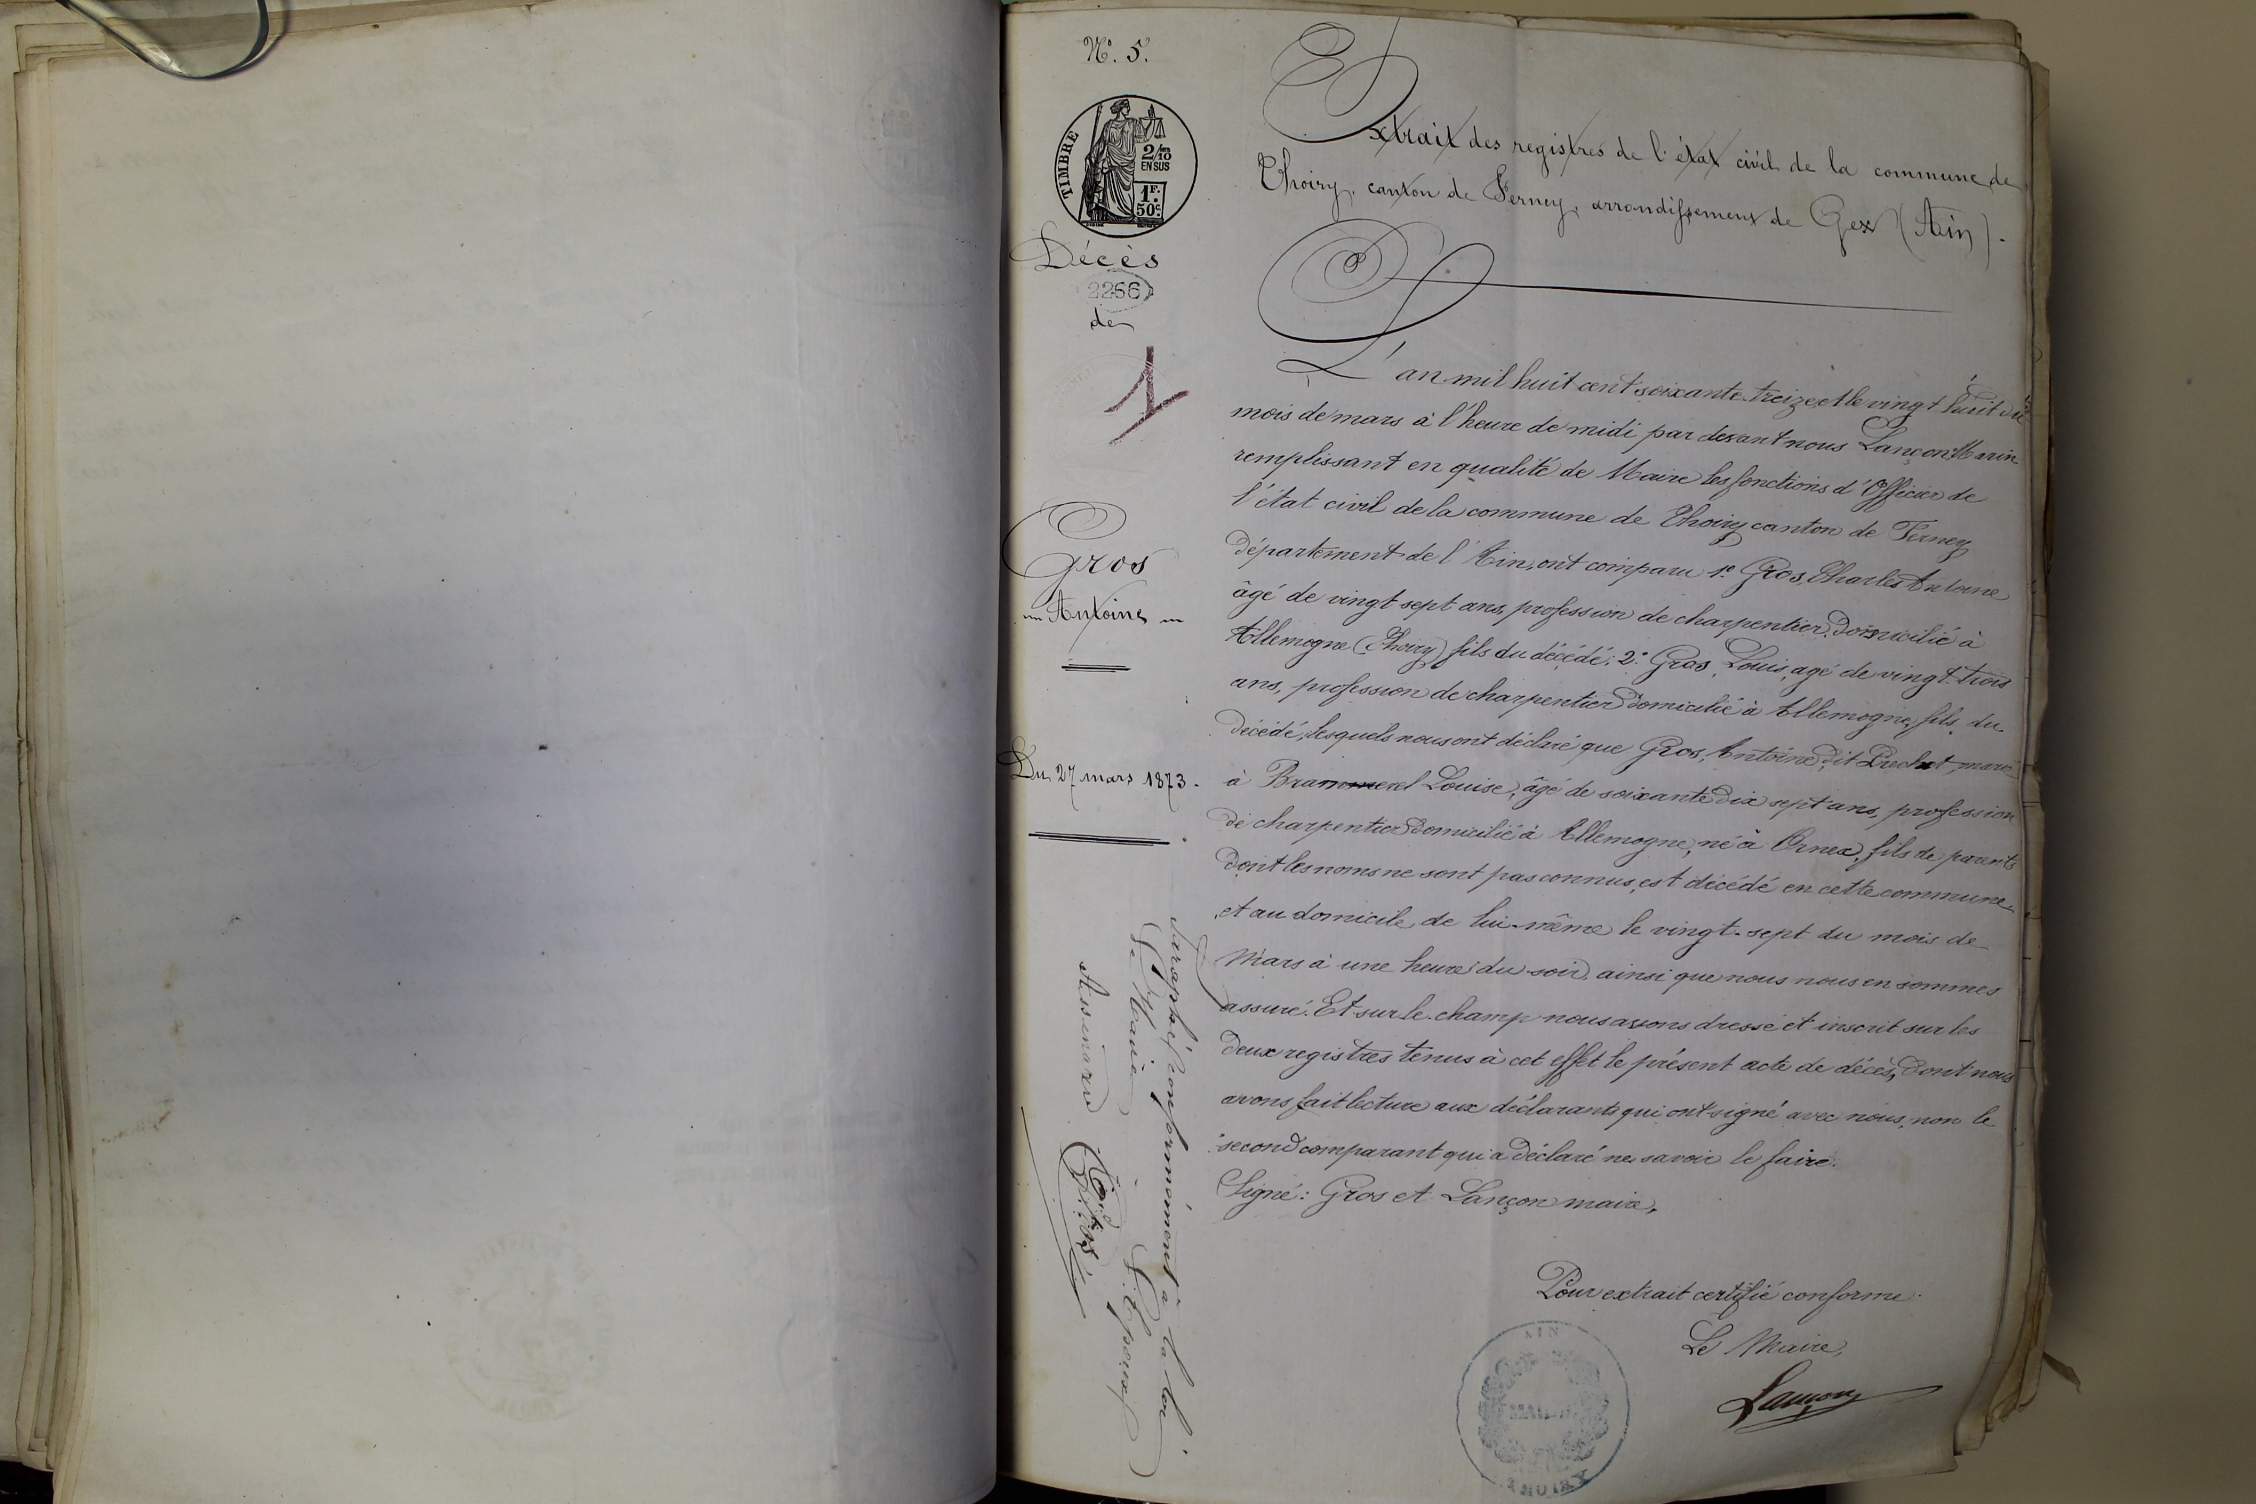 N° 5.
TIMBRE
2/10
EN SUS
1F.
50c.
Décès
2266
de
Gros
Antoine
Du 27 mars 1873.
Extrait des registres de l'état civil de la commune de
Thoiry, canton de Ferney, arrondissement de Gex (Ain).
L'an mil huit cent soixante-treize et le vingt huit du
mois de mars à l'heure de midi par devant nous Lançon Marin
remplissant en qualité de Maire les fonctions d'Officier de
l'état civil de la commune de Thoiry canton de Ferney
département de l'Ain, ont comparu 1° Gros, Charles Antoine
âgé de vingt sept ans, profession de charpentier, domicilié à
Allemogne (Thoiry) fils du décédé; 2° Gros, Louis, agé de vingt-trois
ans, profession de charpentier domicilié à Allemogne, fils du
décédé, lesquels nous ont déclaré que Gros, Antoine, dit marié
à Louise, âgé de soixante dix sept ans, profession
de charpentier domicilié à Allemogne, né à Ornex, fils de parents
dont les noms ne sont pas connus, est décédé en cette commune
et au domicile de lui-même le vingt-sept du mois de
Mars à une heure du soir, ainsi que nous nous en sommes
assuré. Et sur le champ nous avons dressé et inscrit sur les
deux registres tenus à cet effet le présent acte de décès, dont nous
avons fait lecture aux déclarants qui ont signé avec nous, non le
second comparant qui a déclaré ne savoir le faire.
Signé: Gros et Lançon maire,
Pour extrait certifié conforme
Le Maire,
Lançon
AIN
MAIRIE
THOIRY
paraphé conformément à la loi
Le Maire